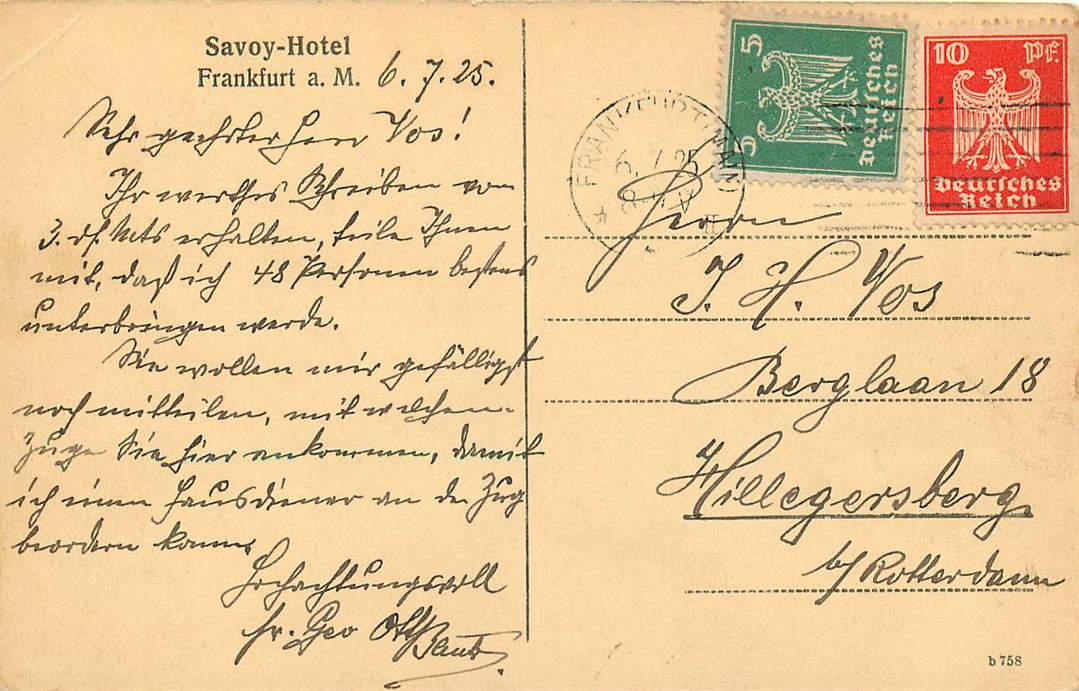 Savoy-Hotel
Frankfurt a. M. 6.7.25.
Sehr geehrter Herr Vos!
Ihr werthes Schreiben vom
3. ds Mts erhalten, teile Ihnen
mit, daß ich 48 Personen bestens
unterbringen werde.
Sie wollen mir gefälligst
noch mitteilen, mit welchen
Zuge Sie hier ankommen, damit
ich einen Hausdiener an den Zug
beordern kann.
Hochachtungsvoll
Otto
5
5
Deutsches
Reich
10 Pf.
Deutsches
Reich
FRANKFURT (MAIN)
6.7.25
Herrn
J. H. Vos
Berglaan 18
Hillegersberg
b/ Rotterdamm
b 758